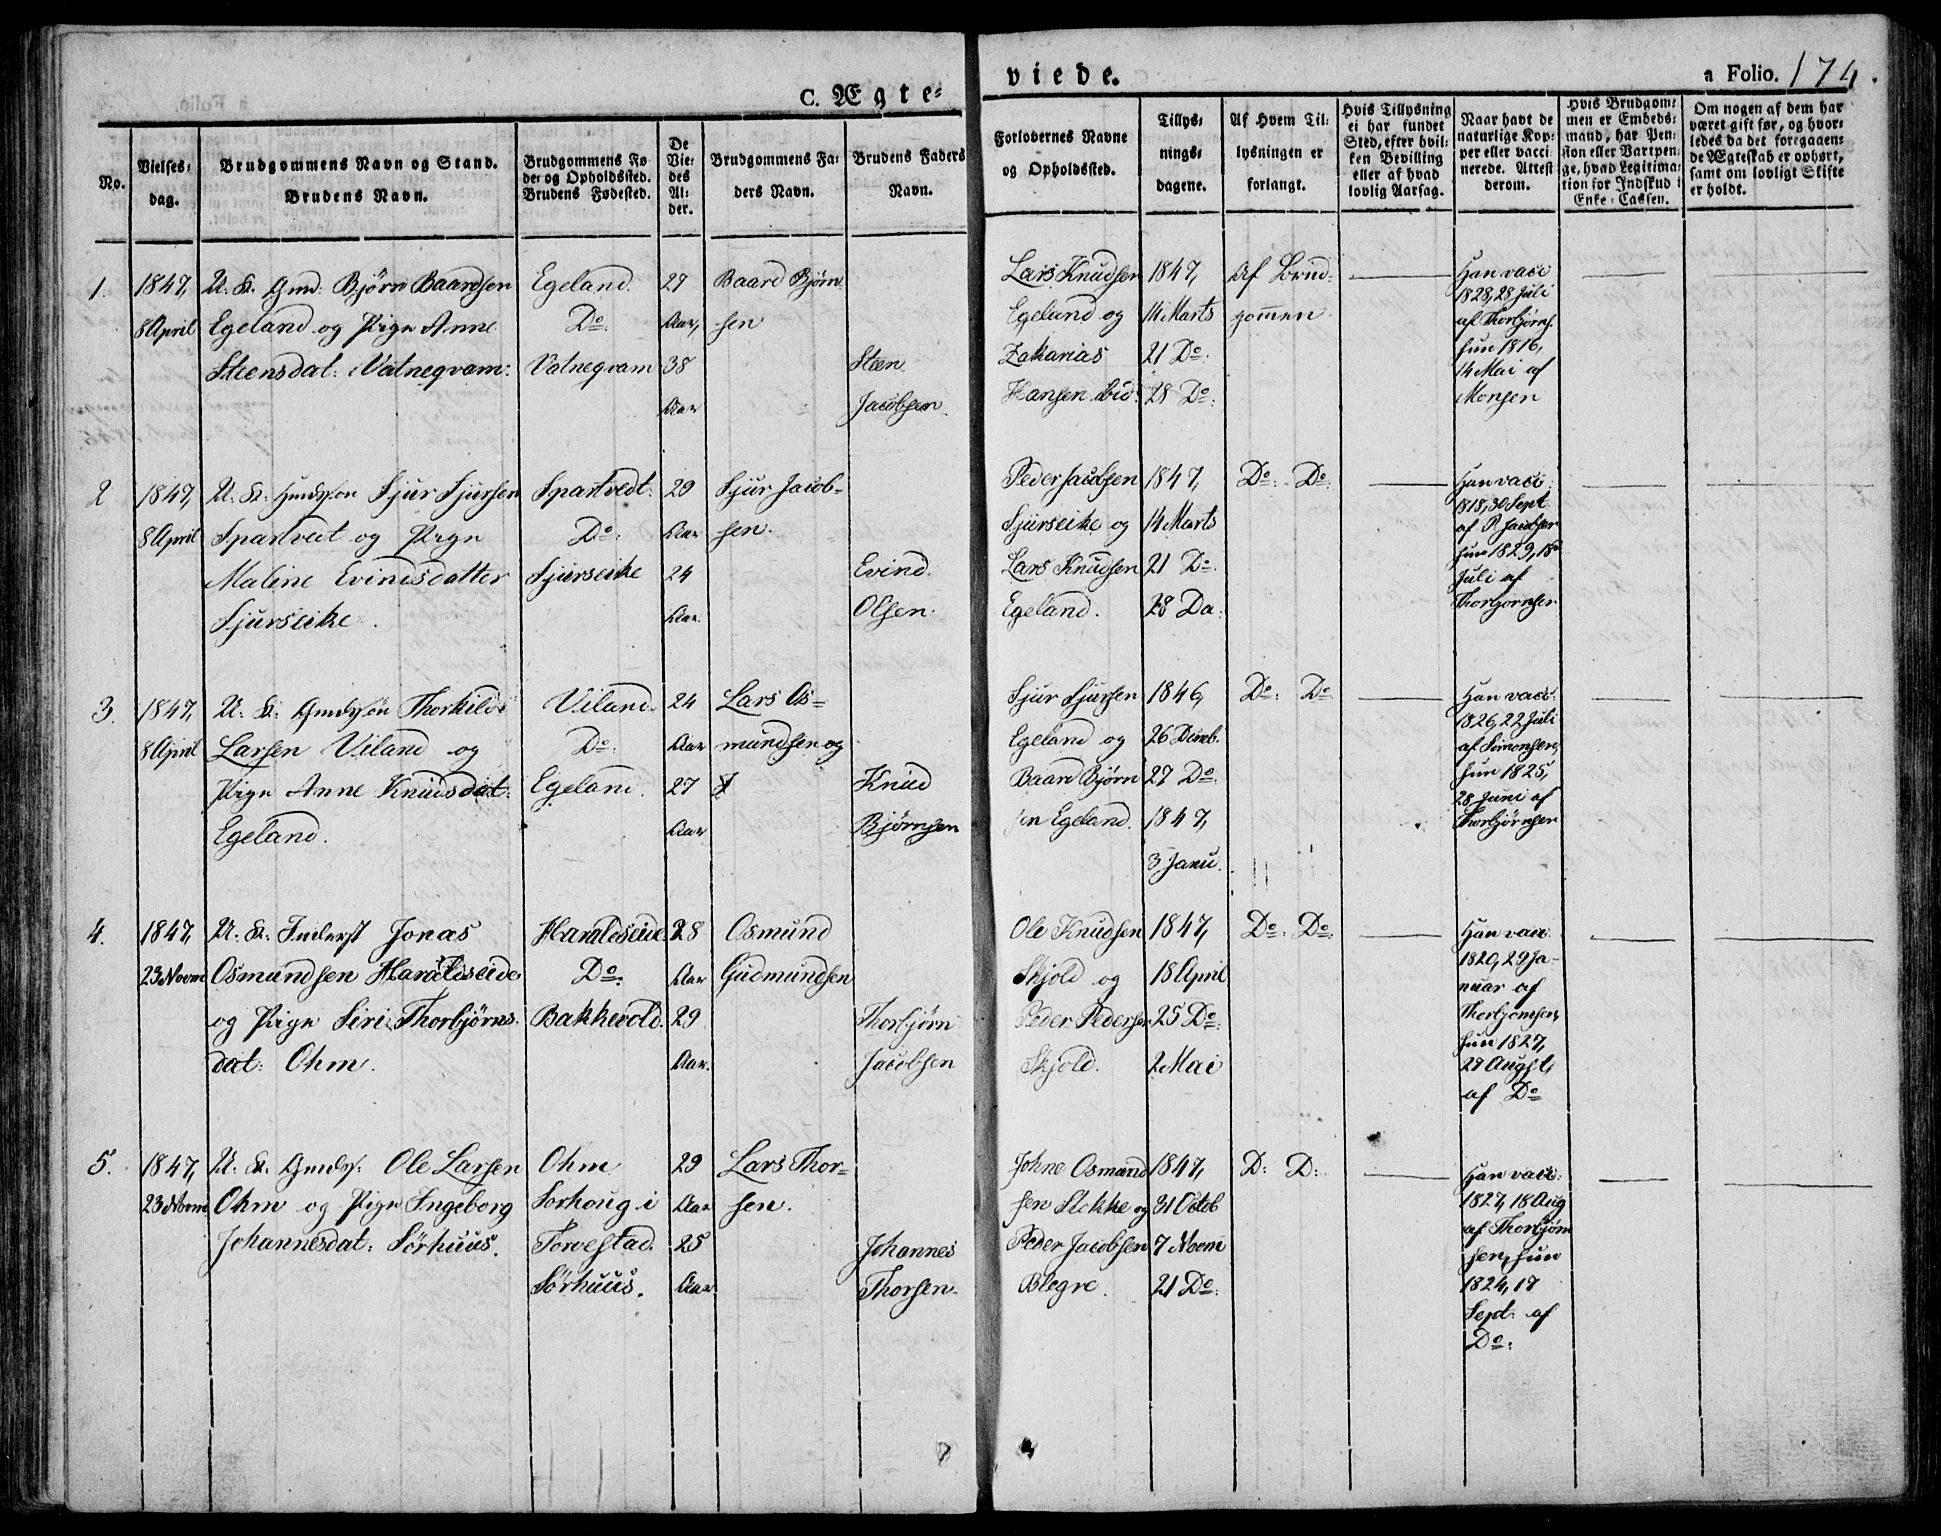 C. Ægte-
viede.
a Folio. 174.
No.
Vielses-
dag.
Brudgommens Navn og Stand.
Brudens Navn.
Brudgommens Fø-
de- og Opholdssted.
Brudens Fødested.
De
Vie-
des
Al-
der.
Brudgommens Fa-
ders Navn.
Brudens Faders
Navn.
Forlovernes Navne
og Opholdssted.
Tillys-
nings-
dagene.
Af Hvem Til-
lysningen er
forlangt.
Hvis Tillysning
ei har fundet
Sted, efter hvil-
ken Bevilling
eller af hvad
lovlig Aarsag.
Naar havt de
naturlige Kop-
per eller vacci-
nerede. Attest
derom.
Hvis Brudgom-
men er Embeds-
mand, har Pen-
sion eller Vartpen-
ge, hvad Legitima-
tion for Indskud i
Enke-Cassen.
Om nogen af dem har
været gift før, og hvor-
ledes da det foregaaen-
de Ægteskab er ophørt,
samt om lovligt Skifte
er holdt.
1.
1847,
8 April
U. K. Gmd. Bjørn Baardsen
Egeland og Pige Anne
Steensdat: Vatneqvam.
Egeland.
Do
Vatneqvam
27
Aar,
38
Aar
Baard Bjørn
sen
Steen
Jacobsen.
Lars Knudsen
Egeland og
Zakarias
Hansen ibid:
1847,
14 Marts
21 Do.
28 Do:
Af Brud-
gommen
Han vacc
1828, 28 Juli
af Thorbjørns.
hun 1816,
14 Mai af
Monsen
2
1847,
8 April
U. K: Gmdssøn Sjur Sjursen
Spartveit og Pige
Maline Evindsdatter
Sjurseike.
Spartvedt.
Do:
Sjurseike
29
Aar
24
Aar.
Sjur Jacob-
sen.
Evind
Olsen.
Peder Jacobsen
Sjurseike og
Lars Knudsen
Egeland.
1847,
14 Marts
21 Do.
28 Do.
Do: Do:
Han vacc:
1818, 30 Sept
af P. Jacobsen
hun 1829, 18d
Juli af
Thorbjørnsen
3.
1847,
8 April
U. K: Gmdssøn Thorkild
Larsen Viland og
Pige Anne Knudsdat:
Egeland.
Viland.
Do:
Egeland.
24
Aar
27
Aar
Lars Os-
mundsen og
Knud
Bjørnsen
Sjur Sjursen
Egeland og
Baard Bjørn
sen Egeland.
1846,
26 Dcemb.
27 Do:
1847,
3 Janu.
Do: Do
Han vacc:
1826, 22 Juli
af Simonsen,
hun 1825,
28 Juni af
Thorbjørnsen
4.
1847,
23 Novm
U. K: Inderst Jonas
Osmundsen Haraldseide
og Pige Siri Thorbjørns-
dat: Ohm.
Haraldseide.
Do.
Bakkevold.
28
Aar
29
Aar.
Osmund
Gudmundsen
Thorbjørn
Jacobsen
Ole Knudsen
Skjold og
Peder Pedersen
Skjold.
1847,
18 April
25 Do:
2 Mai
Do: Do:
Han vacc:
1820, 29 Ja-
nuar af
Thorbjørnsen,
hun 1827,
27 August,
af Do
5.
1847,
23 Novm
U. K. Gmdss: Ole Larsen
Ohm og Pige Ingeborg
Johannesdat: Sørhuus.
Ohm
Sorhoug i
Torvestad.
Sørhuus.
29
Aar
25
Aar
Lars Thor-
sen.
Johannes
Thorsen.
Johne Osmund
sen Stokke og
Peder Jacobsen
Blegre.
1847,
31 Octob
7 Novm
21 Do:
D: D:
Han vacc:
1827, 18 Aug
af Thorbjørn
sen, hun
1824, 17
Sept: af
Do: